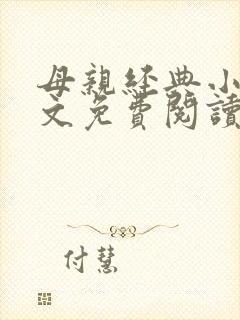 母親經典小
文免費閱讀
付慧